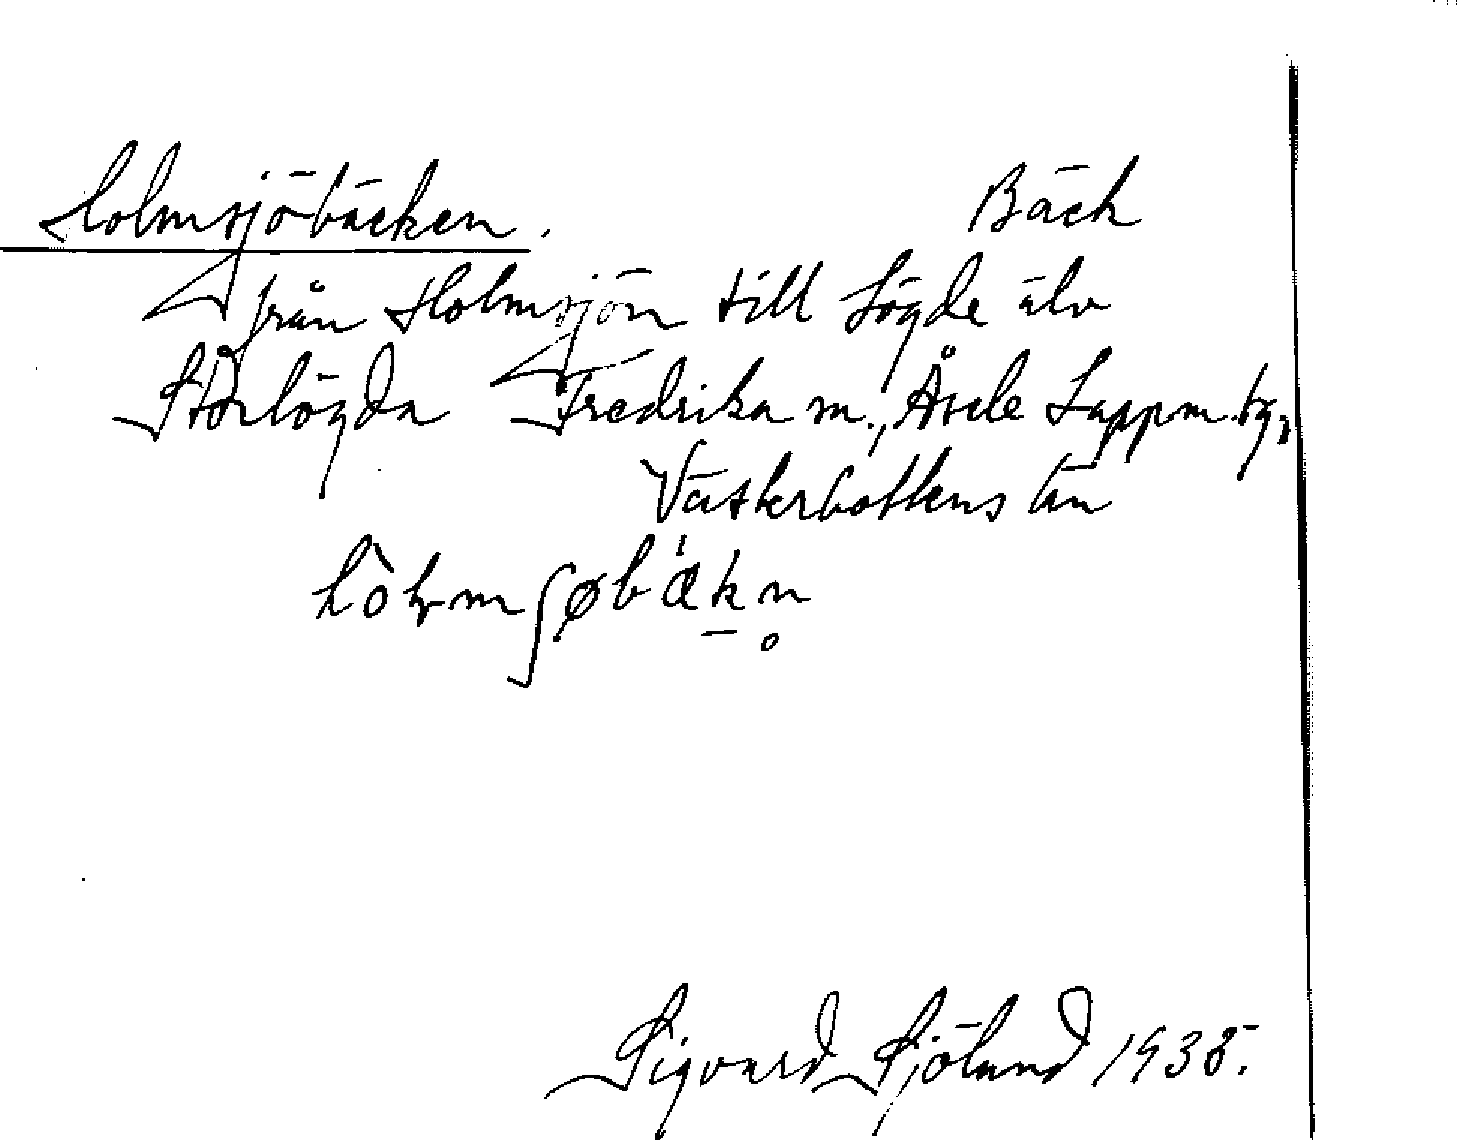 Holmsjöbäcken. Bäck
från Holmsjön till Lögde älv
Storlögda Fredrika sn., Åsele Lappm. tg,
Västerbottens län
Sigvard Sjölund 1935.